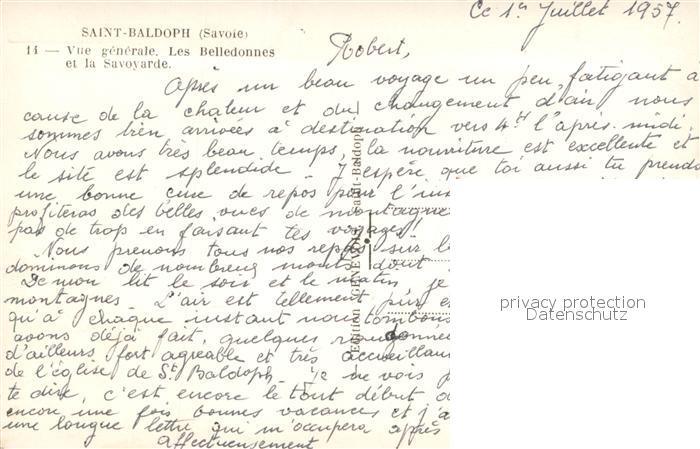 Ce 1er Juillet 1957.
SAINT-BALDOPH (Savoie)
14 — Vue générale. Les Belledonnes
et la Savoyarde.
Robert,
Après un beau voyage un peu fatigant à
cause de la chaleur et du changement d'air nous
sommes bien arrivées à destination vers 4H l'après-midi.
Nous avons très beau temps, la nourriture est excellente et
le site est splendide - J'espère que toi aussi tu prends
une bonne cure de repos pour l'ins
profiteras des belles vues de montagne
pas de trop en faisant tes voyages!
Nous prenons tous nos repas sur la
dominons de nombreux monts dont
De mon lit le soir et le matin, je
montagnes. L'air est tellement pur e
qu'à chaque instant nous tombons
avons déjà fait, quelques randonnées
d'ailleurs fort agréable et très accueillan
de l'église de St Baldoph - Je ne vois p
te dire, c'est encore le tout début d
encore une fois bonnes vacances et j'a
une longue lettre qui m'occupera après
Affectueusement
Edition GENEVOIS, Saint-Baldoph
privacy protection
Datenschutz